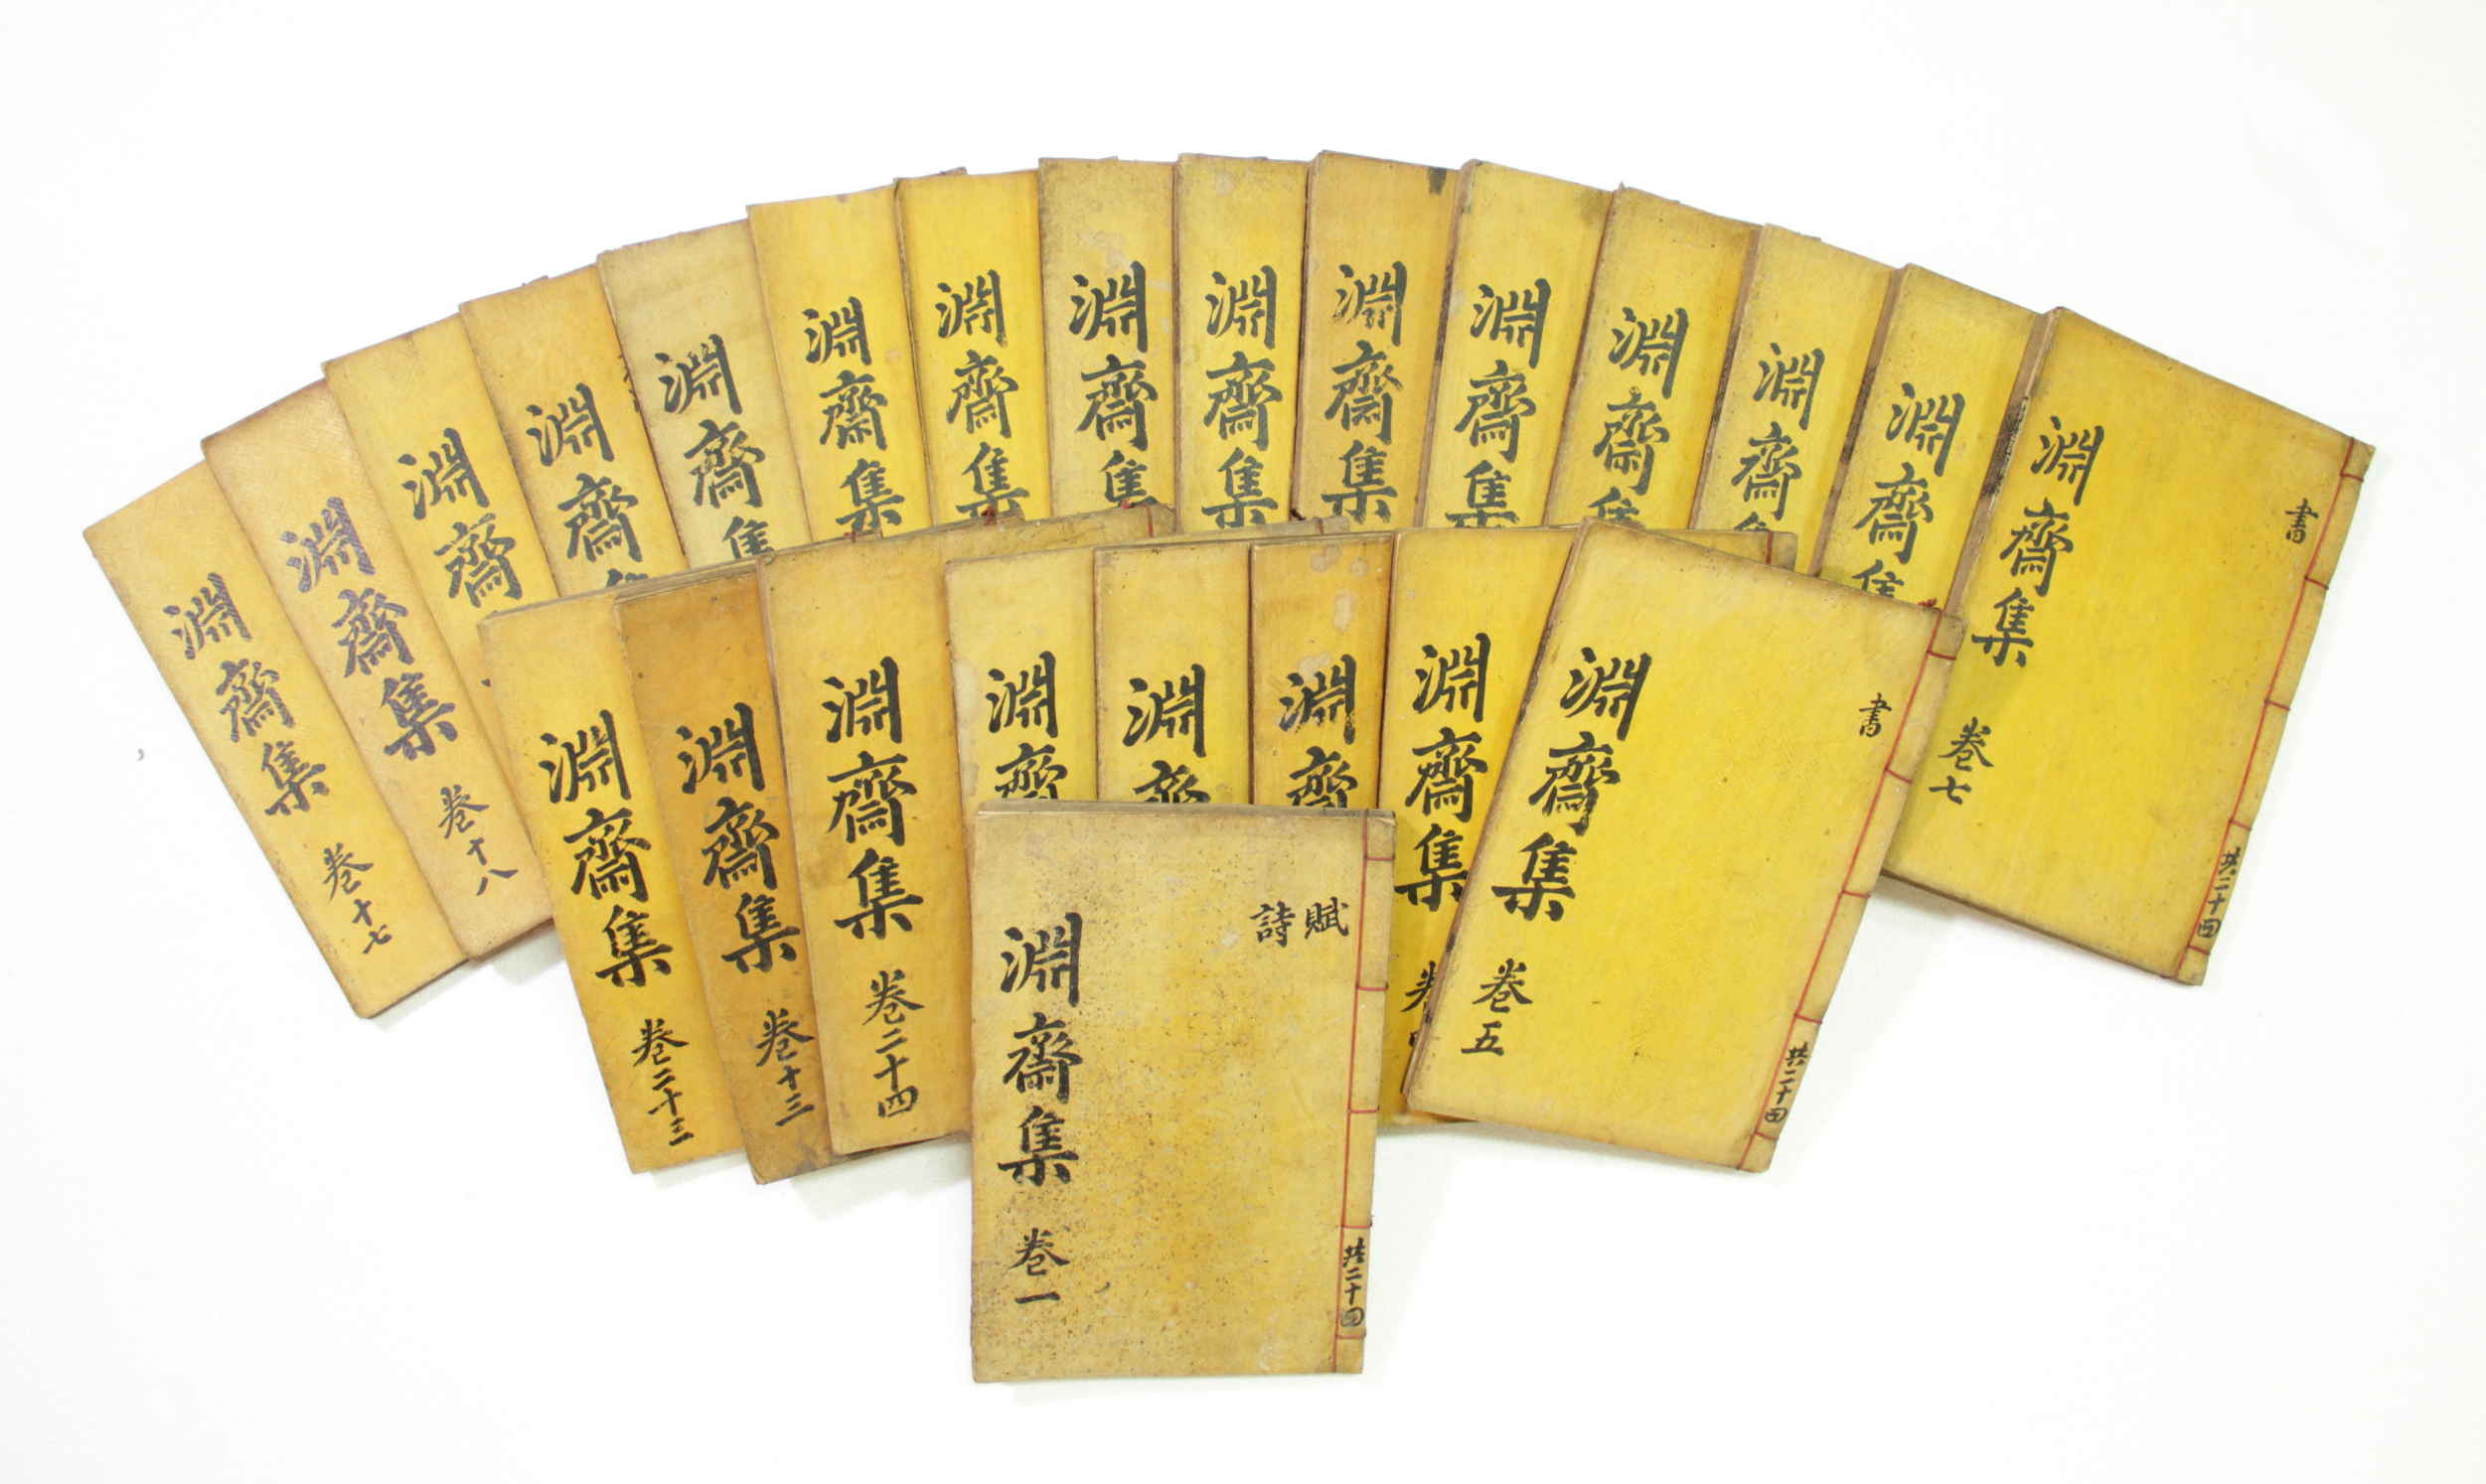 淵齋集 卷十七
淵齋集 卷十八
淵齋
淵齋
淵齋集
淵齋集
淵齋集
淵齋集
淵齋集
淵齋集
淵齋集
淵齋
淵齋
淵齋集
書
淵齋集 卷七
共二十四
淵齋集 卷二十三
淵齋集 卷十三
淵齋集 卷二十四
淵齋
淵齋
淵齋
淵齋集 卷
書
淵齋集 卷五
共二十四
賦
詩
淵齋集 卷一
共二十四